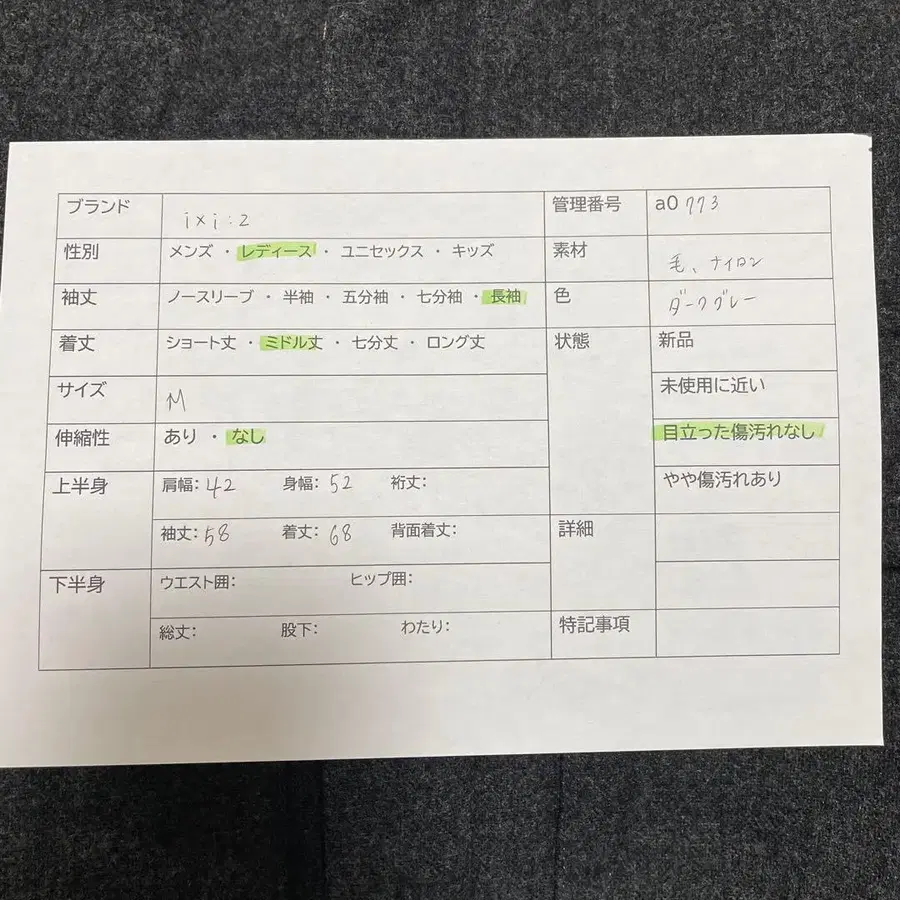 ブランド i×i:2 管理番号 a0773
性別 メンズ ・ レディース ・ ユニセックス ・ キッズ 素材 毛、ナイロン
袖丈 ノースリーブ ・ 半袖 ・ 五分袖 ・ 七分袖 ・ 長袖 色 ダークグレー
着丈 ショート丈 ・ ミドル丈 ・ 七分丈 ・ ロング丈 状態 新品
サイズ M 未使用に近い
伸縮性 あり ・ なし 目立った傷汚れなし
上半身 肩幅: 42 身幅: 52 裄丈: やや傷汚れあり
袖丈: 58 着丈: 68 背面着丈: 詳細
下半身 ウエスト囲: ヒップ囲:
総丈: 股下: わたり: 特記事項